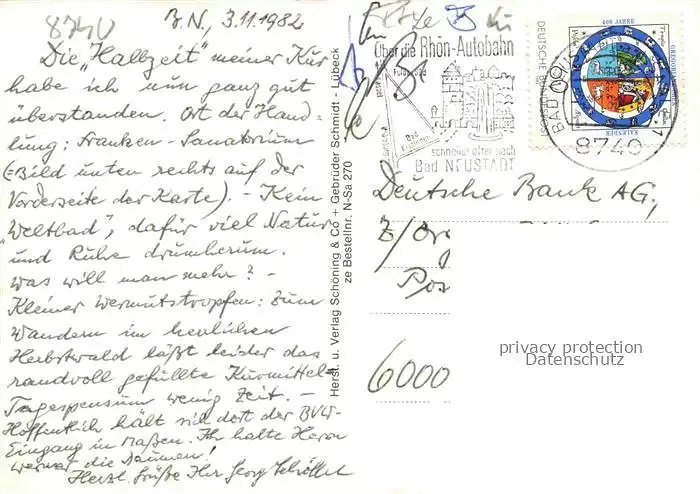 8740
B. N., 3.11.1982
Die "Halbzeit" meiner Kur
habe ich nun ganz gut
überstanden. Ort der Hand-
lung: Franken-Sanatorium
(=Bild unten rechts auf der
Vorderseite der Karte). - Kein
"Weltbad", dafür viel Natur
und Ruhe drumherum.
Was will man mehr? -
Kleiner Wermutstropfen: Zum
Wandern im herrlichen
Herbstwald läßt leider das
randvoll gefüllte Kurmittel-
Tagespensum wenig Zeit. -
Hoffentlich hält sich dort der BVW-
Eingang in Maßen. Ich halte Ihnen
die Daumen!
Herzl. Grüße Ihr Georg
Herst. u. Verlag Schöning & Co + Gebrüder Schmidt - Lübeck
ze Bestellnr. N-Sa 270
Über die Rhön-Autobahn
Fulda
Bad
Kissingen
schneller öfter nach
Bad NEUSTADT
400 JAHRE
GREGORIANISCHER
KALENDER
DEUTSCHE BUNDESPOST
BAD
8740 1
Deutsche Bank AG,
Z/Org
Pos
6000
privacy protection
Datenschutz